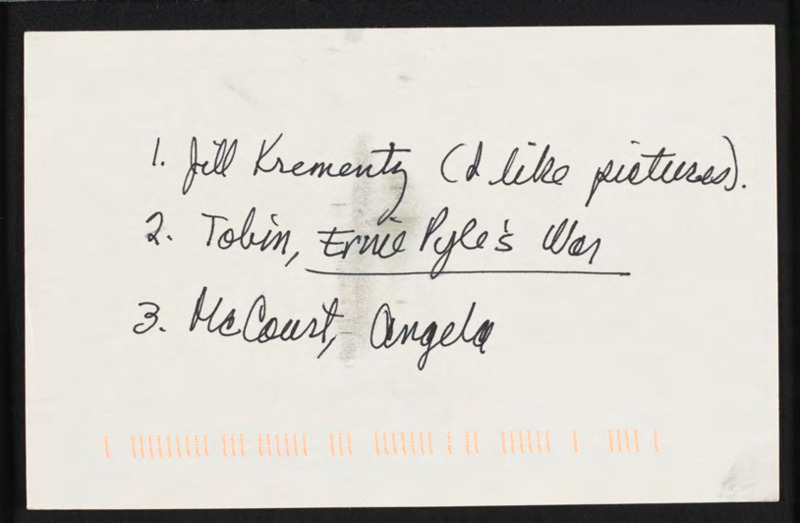 1. Jill Krementz (I like pictures).
2. Tobin, Ernie Pyle's War
3. McCourt, Angela